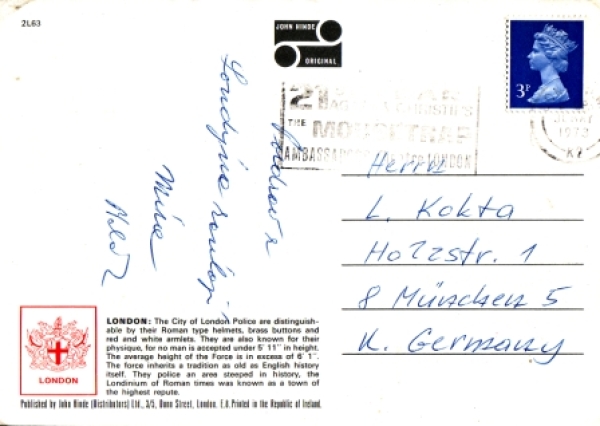 2L63
JOHN HINDE
ORIGINAL
3P
21
THE
MOUSETRAP
AMBASSADORS LONDON
1973
Pozdrav z
Londýna
Mirek
Herrn
L. Kokta
Holzstr. 1
8 München 5
W. Germany
LONDON: The City of London Police are distinguish-
able by their Roman type helmets, brass buttons and
red and white armlets. They are also known for their
physique, for no man is accepted under 5' 11" in height.
The average height of the Force is in excess of 6' 1".
The force inherits a tradition as old as English history
itself. They police an area steeped in history, the
Londinium of Roman times was known as a town of
the highest repute.
LONDON
Published by John Hinde (Distributors) Ltd., 3/5, Dunn Street, London, E.8. Printed in the Republic of Ireland.